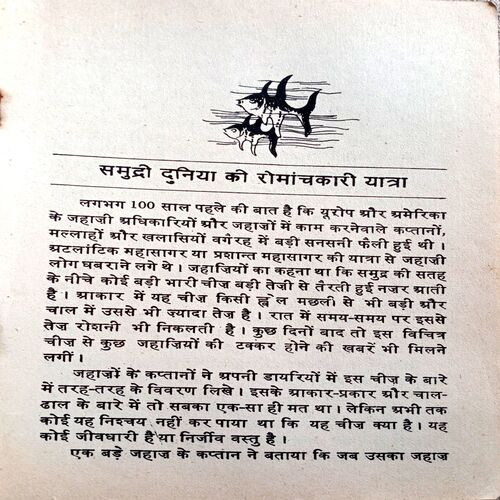 समुद्री दुनिया की रोमांचकारी यात्रा
लगभग 100 साल पहले की बात है कि यूरोप और अमेरिका
के जहाज़ी अधिकारियों और जहाज़ों में काम करनेवाले कप्तानों,
मल्लाहों और खलासियों वगैरह में बड़ी सनसनी फैली हुई थी ।
अटलांटिक महासागर या प्रशान्त महासागर की यात्रा से जहाज़ी
लोग घबराने लगे थे । जहाज़ियों का कहना था कि समुद्र की सतह
के नीचे कोई बड़ी भारी चीज़ बड़ी तेज़ी से तैरती हुई नज़र आती
है । आकार में यह चीज़ किसी ह्वेल मछली से भी बड़ी और
चाल में उससे भी ज़्यादा तेज़ है । रात में समय-समय पर इससे
तेज़ रोशनी भी निकलती है । कुछ दिनों बाद तो इस विचित्र
चीज़ से कुछ जहाज़ियों की टक्कर होने की खबरें भी मिलने
लगीं ।
जहाज़ों के कप्तानों ने अपनी डायरियों में इस चीज़ के बारे
में तरह-तरह के विवरण लिखे । इसके आकार-प्रकार और चाल-
ढाल के बारे में तो सबका एक-सा ही मत था । लेकिन अभी तक
कोई यह निश्चय नहीं कर पाया था कि यह चीज़ क्या है । यह
कोई जीवधारी है या निर्जीव वस्तु है ।
एक बड़े जहाज़ के कप्तान ने बताया कि जब उसका जहाज़